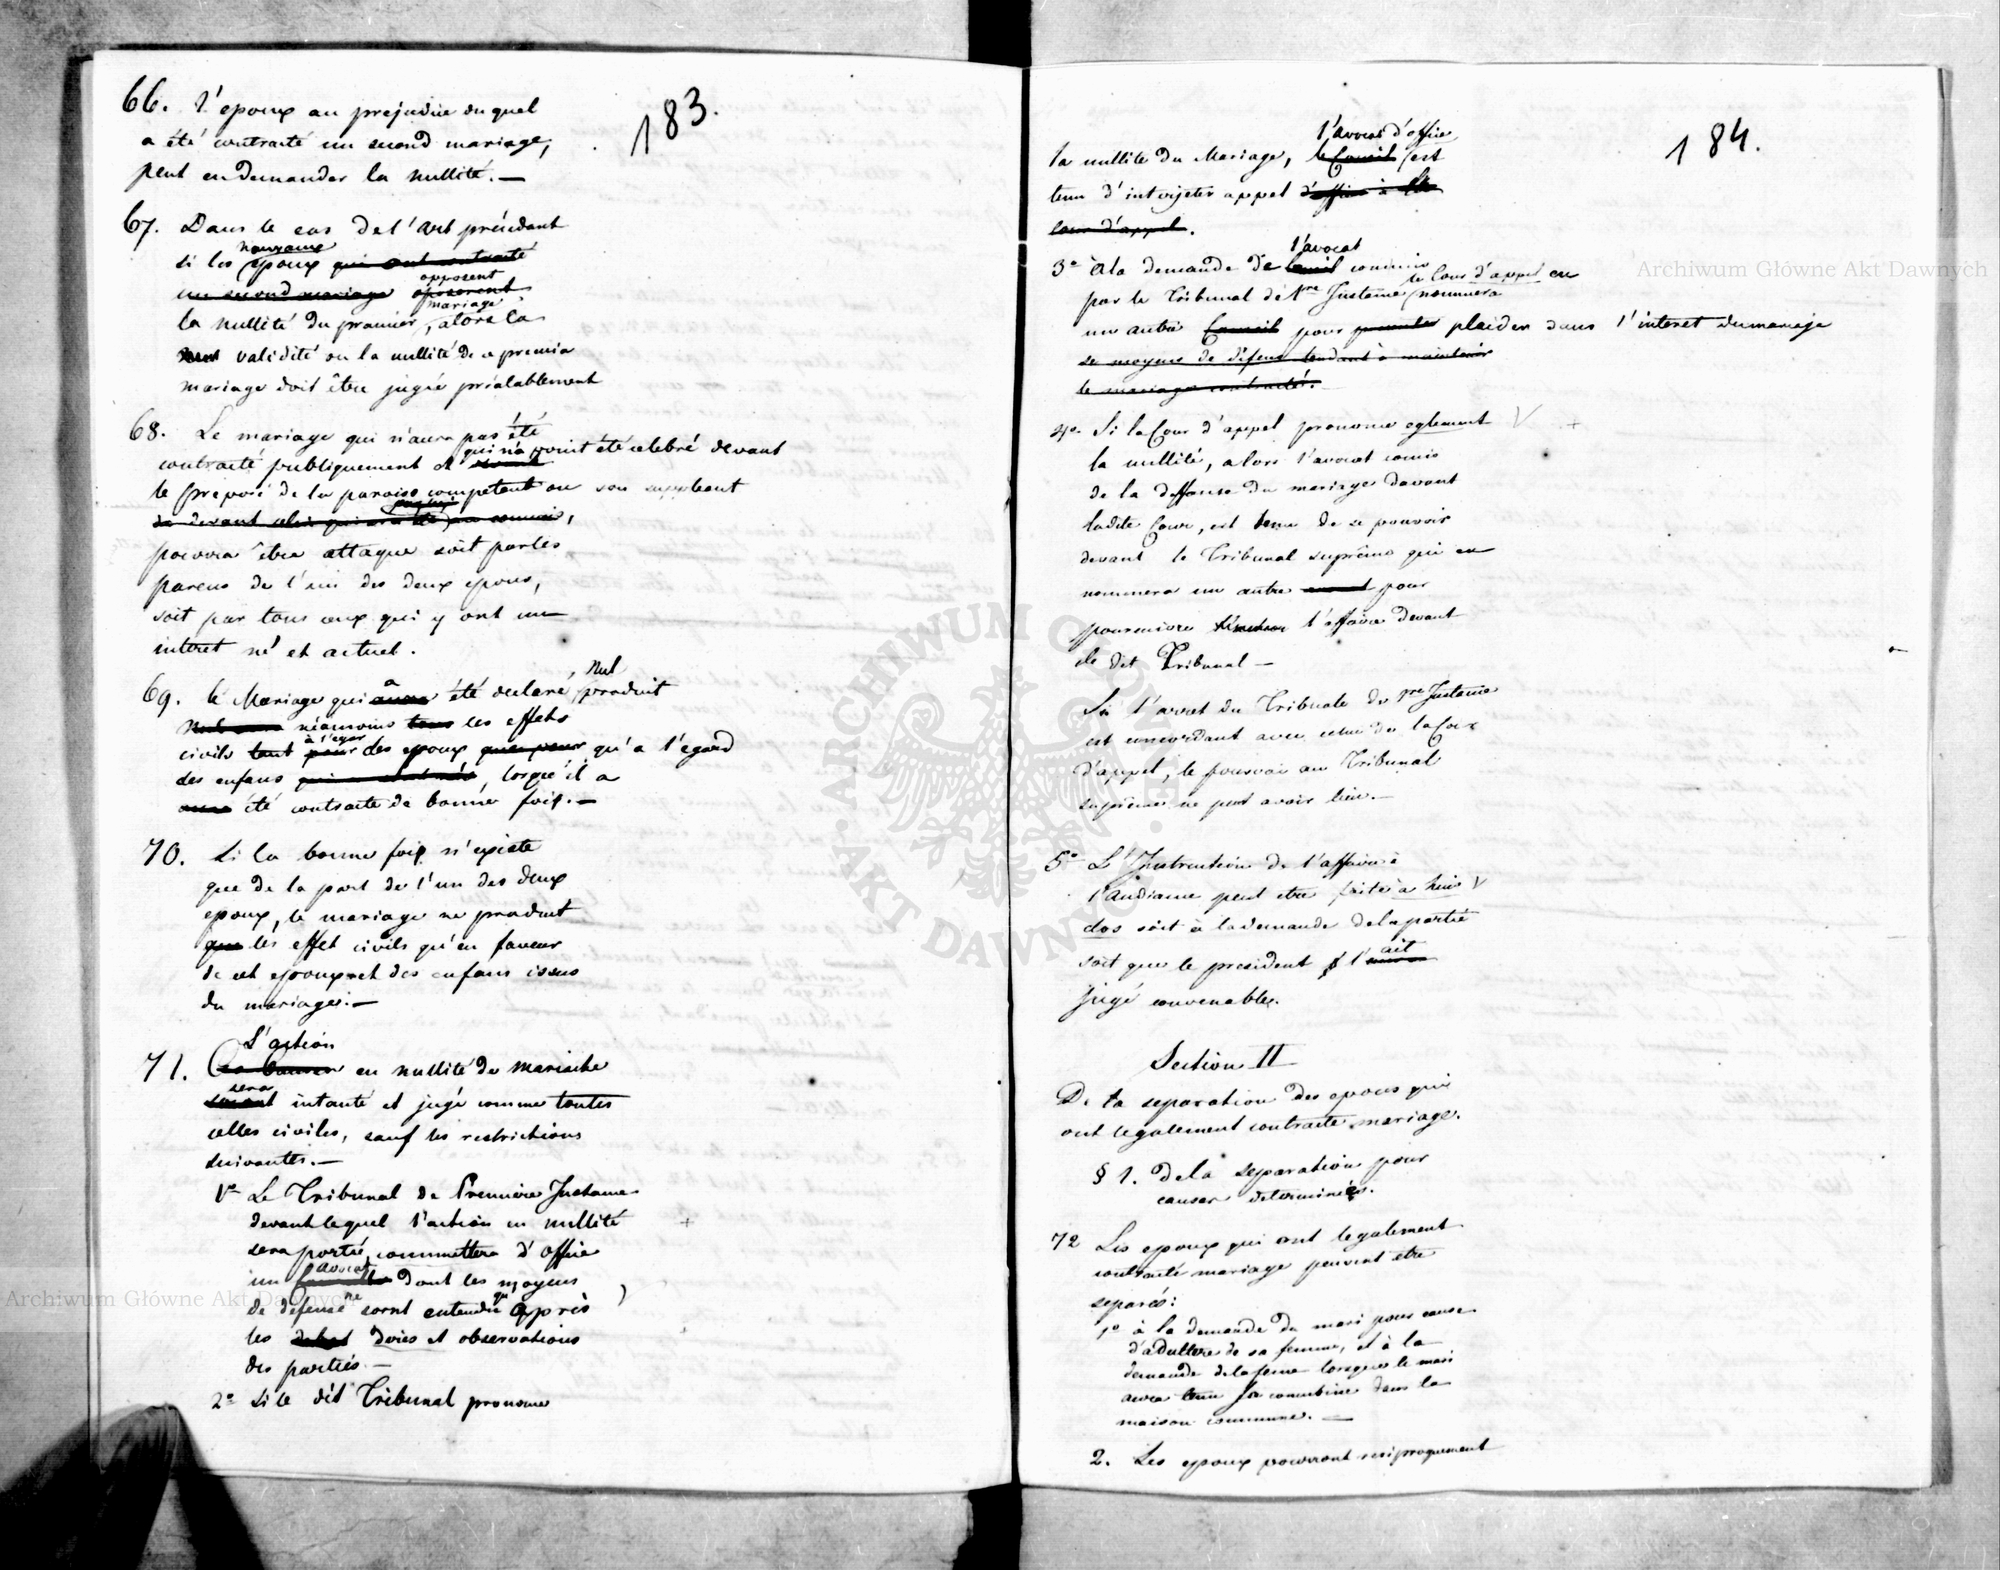 183.
66. L'epoux au prejudice du quel
a été contracté un second mariage,
peut en demander la nullité. —
67. Dans le cas de l'art précédant
nouveaux
si les epoux qui ont contracté
un second mariage opposeront opposent
la nullité du premier, mariage alors la
validité ou la nullité de ce premier
mariage doit être jugée préalablement
68. Le mariage qui n'aura pas été
contracté publiquement et qui n'a point été celebré devant
le préposé de la paroisse competent ou son suppleant
pourra être attaque soit par les
parens de l'un des deux epoux,
soit par tous ceux qui y ont un
interet né et actuel.
69. le Mariage qui a été declaré Nul produit
néanmoins tous les effets
civils tant à l'egar des epoux qu'a l'egard
des enfans lorsqu'il a
été contracté de bonne foix. —
70. Si la bonne foix n'existe
que de la part de l'un des deux
epoux, le mariage ne produit
que les effet civils qu'en faveur
de cet epoux et des enfans issus
du mariage. —
L'action
71. en nullité de mariache
sera intenté et jugé comme toutes
celles civiles, sauf les restrictions
suivantes. —
1º Le Tribunal de Première Instance
devant lequel l'action en nullité
sera portée, commettera d'office
un avocat dont les moyens
de defense ne soront entendu qu'apprès
les debat dires et observations
des parties —
2º Si le dit Tribunal prononce
184.
la nullité du Mariage, le Conseil l'avocat d'office est
tenu d'interjeter appel d'office à la
cour d'appel.
3º à la demande de l'avocat commis
par le Tribunal de 1re Instance la Cour d'appel en nommera
un autre Conseil pour plaider dans l'interet du mariage
se moyens de défense tendant à maintenir
le mariage contracté.
4º Si la Cour d'appel prononce eglement
la nullité, alors l'avocat comis
de la deffense du mariage devant
ladite Cour, est tenu de se pouvoir
devant le Tribunal suprême qui en
nommera un autre pour
poursuivre l'affaire devant
le dit Tribunal —
Si l'arret du Tribunale de 1re Instance
est concordant avec celui de la Cour
d'appel, le pourvoi au Tribunal
suprême ne peut avoir lieu. —
5º L'Instruction de l'affaire à
l'audiance peut etre faite à huis
clos soit à la demande de la partie
soit que le president l'ait
jugé convenable.
Section II
De la separation des epoux qui
ont legalement contracté mariage.
§ 1. de la separation pour
causes determinées.
72 Les epoux qui ont legalement
contracté mariage peuvent etre
separés:
1º à la demande du mari pour cause
d'adultere de sa femme, et à la
demande de la feme lorsque le mari
aura tenu sa concubine dans la
maison commune. —
2. Les epoux pourront reciproquement
Archiwum Główne Akt Dawnych
Archiwum Główne Akt Dawnych
ARCHIWUM GŁÓWNE AKT DAWNYCH